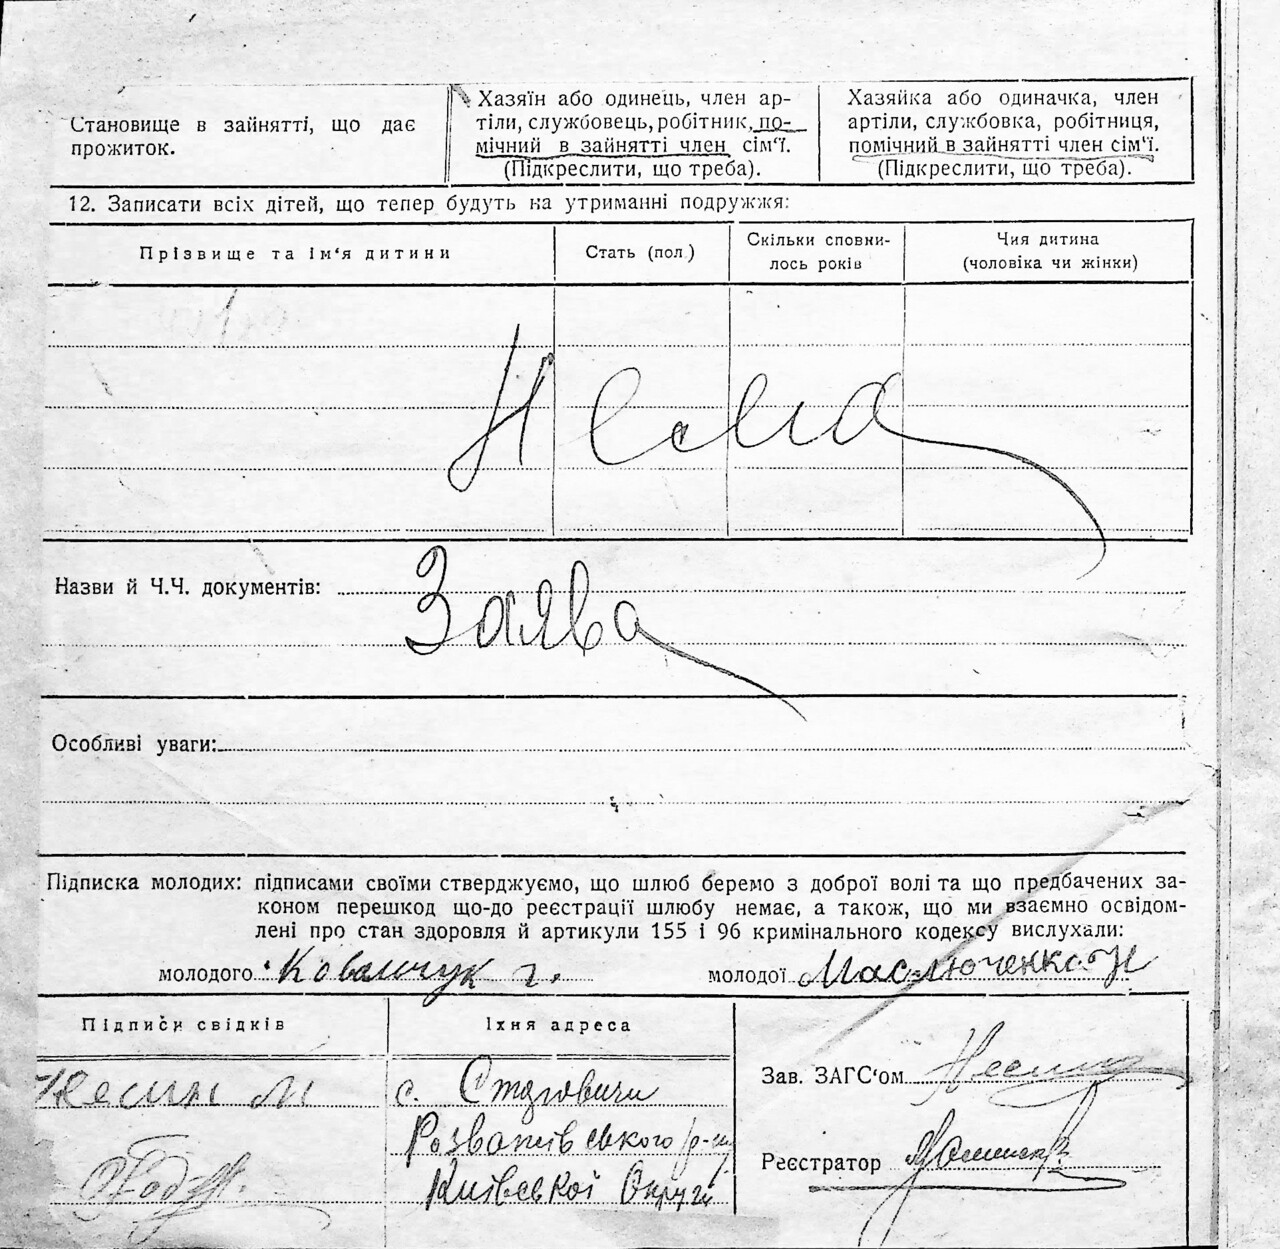 Становище в зайнятті, що дає
прожиток.
Хазяїн або одинець, член ар-
тіли, службовець, робітник, по-
мічний в зайнятті член сім'ї.
(Підкреслити, що треба).
Хазяйка або одиначка, член
артіли, службовка, робітниця,
помічний в зайнятті член сім'ї.
(Підкреслити, що треба).
12. Записати всіх дітей, що тепер будуть на утриманні подружжя:
Прізвище та ім'я дитини
Стать (пол.)
Скільки сповни-
лось років
Чия дитина
(чоловіка чи жінки)
Нема
Назви й Ч.Ч. документів:
Заява
Особливі уваги:
Підписка молодих: підписами своїми стверджуємо, що шлюб беремо з доброї волі та що предбачених за-
коном перешкод що-до реєстрації шлюбу немає, а також, що ми взаємно освідом-
лені про стан здоровля й артикули 155 і 96 кримінального кодексу вислухали:
молодого Ковальчук г.
молодої Маслюченко Н
Підписи свідків
Їхня адреса
Несин М
с. Стдговичи
Розважівського р-ну
Київської Округи
Зав. ЗАГС'ом
Реєстратор